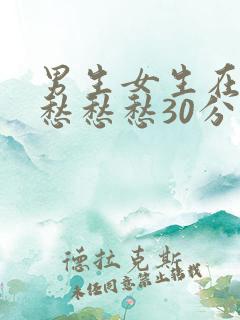 男生女生在
愁愁愁30分
德拉克斯
未经同意禁止转载